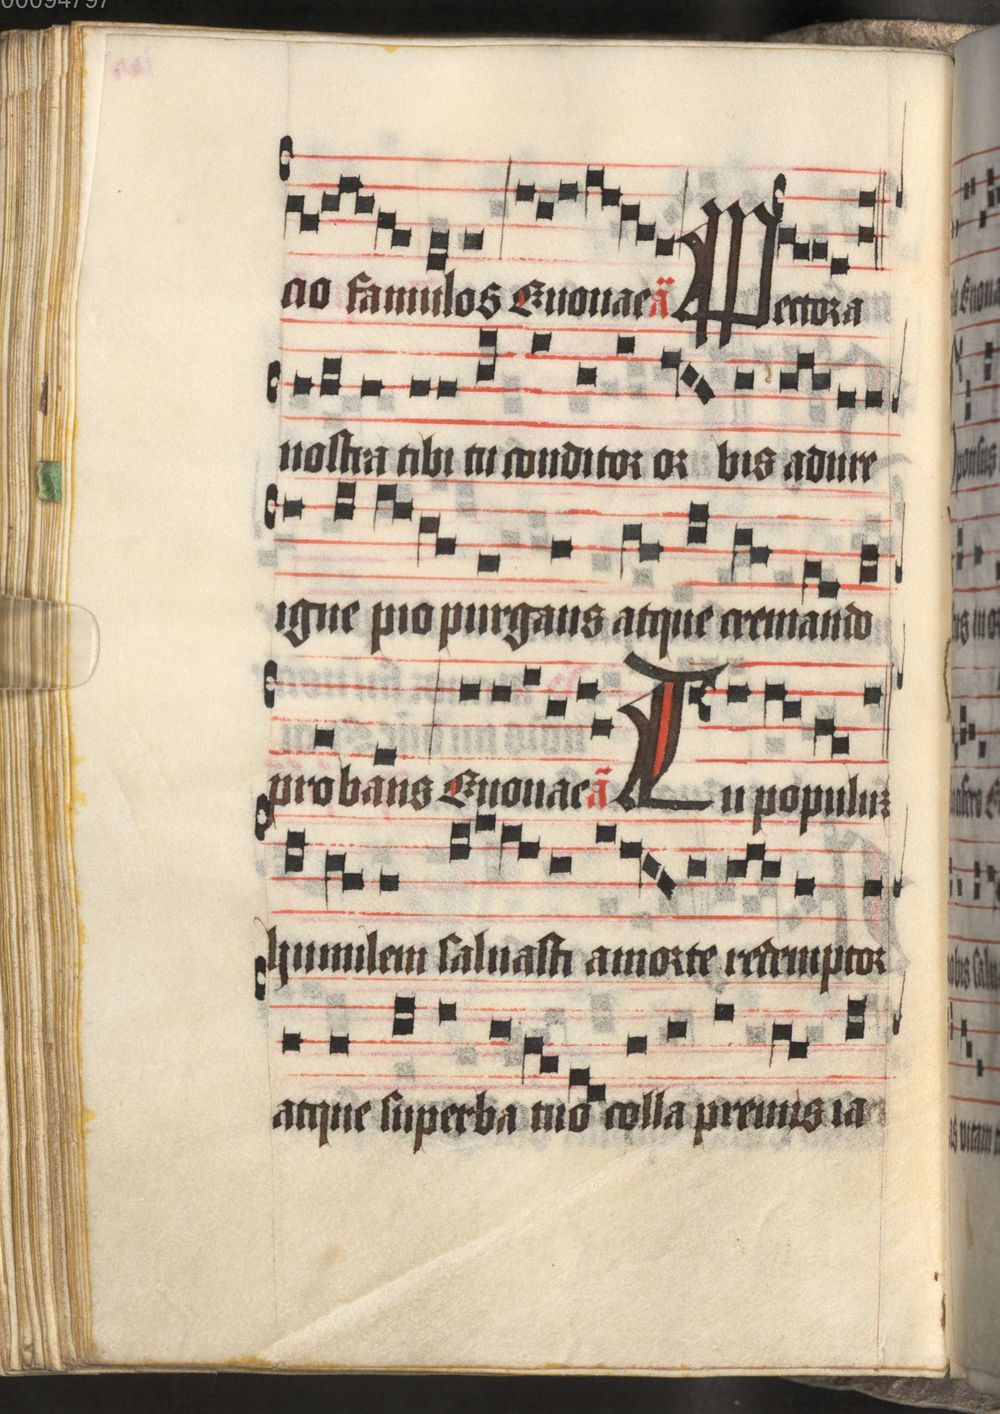 00094797
cio famulos Euouae a̅ Pectora
nostra tibi tu conditor or bis adure
igne pio purgans atque cremando
probans Euouae a̅ Tu populuz
humilem saluasti amorte redemptor
atque superba tuo colla premis ia